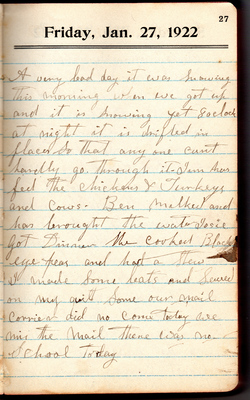 27
Friday, Jan. 27, 1922
A very bad day it was snowing
this morning when we got up
and it is snowing yet 8 oclock
at night it is drifted in
places so that any one cant
hardly go through it Jim has
fed the Chickens & Turkeys
and cows. Ben milked and
has brought the water Josie
got Dinner She cooked Black
eye peas and had a Stew
I made Some and Sewed
on my quilt Some our mail
carrier did no come today we
mis the Mail there was no
School today